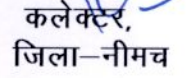 कलेक्टर,
जिला–नीमच